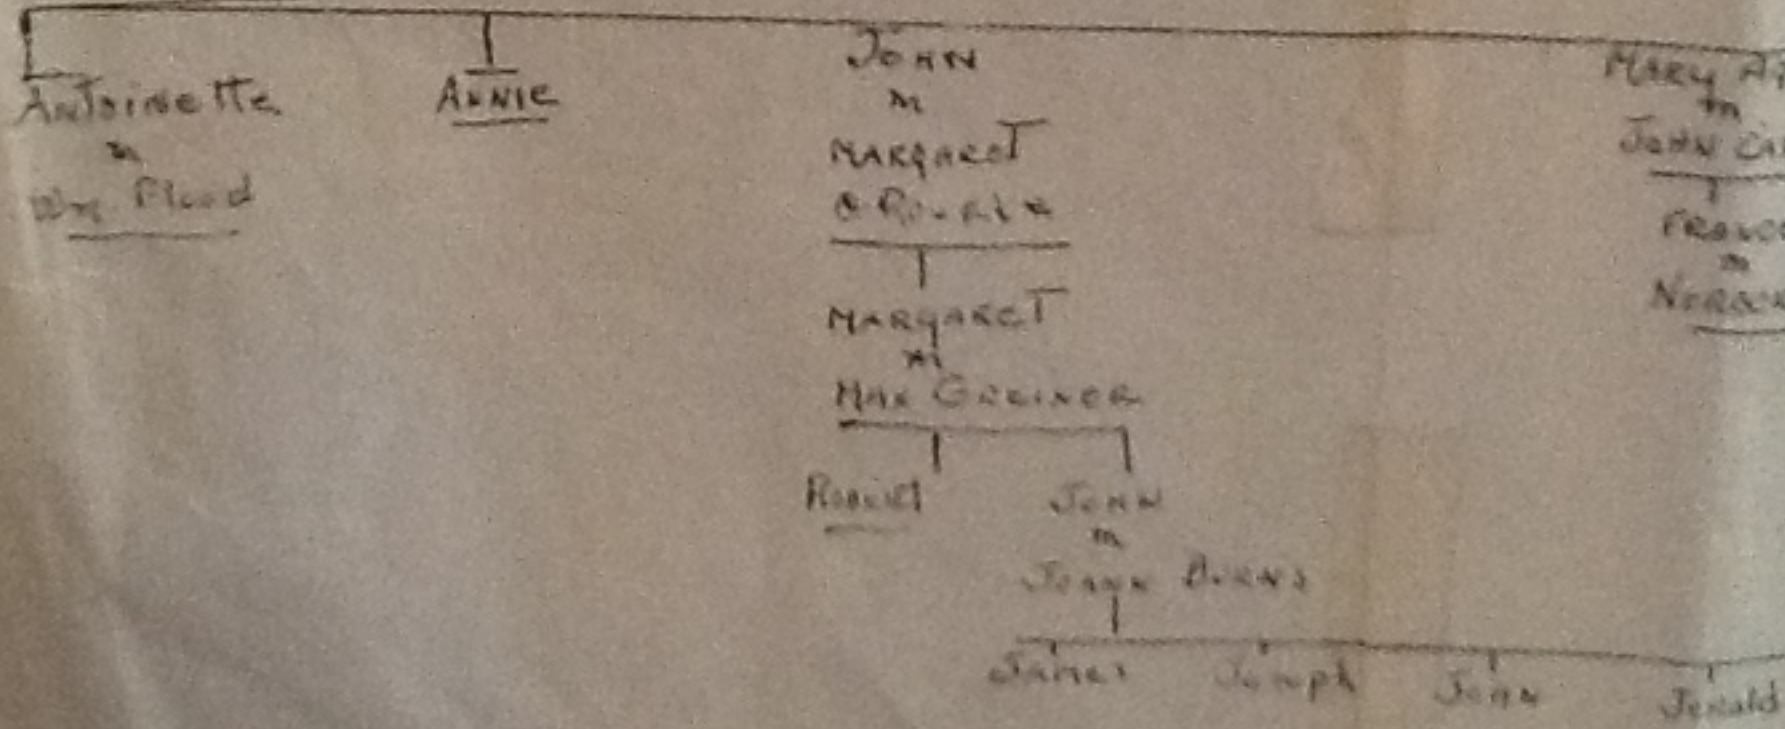 Antoinette
m
Wm. Flood
Annie
John
m
Margaret
O Rourke
Margaret
m
Max Greiner
Robert
John
m
Burns
James
Joseph
John
Jerald
Mary
m
John